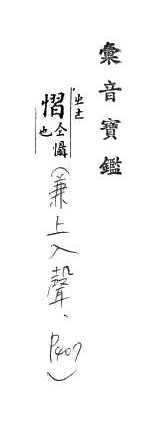 彙音寶鑑
ㄓㄜˊ
慴 仝懾也
(兼上入聲、P407)